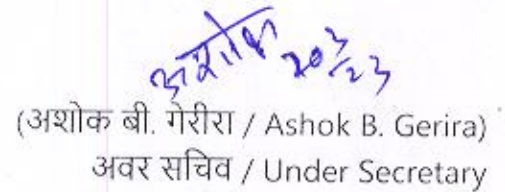 अशोक 20/3/23
(अशोक बी. गेरीरा / Ashok B. Gerira)
अवर सचिव / Under Secretary